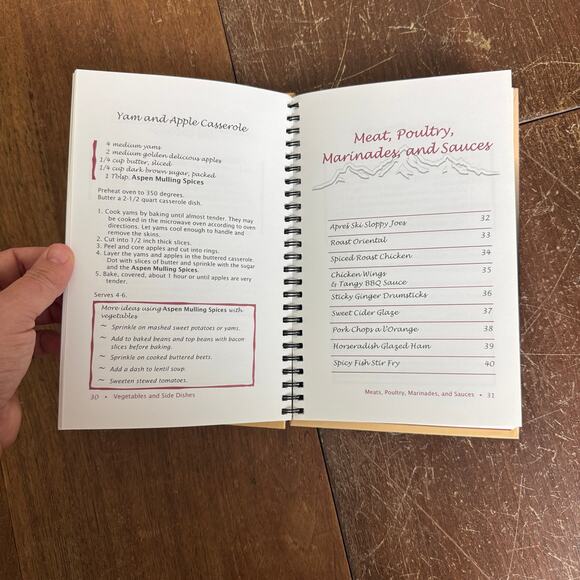 Yam and Apple Casserole
4 medium yams
2 medium golden delicious apples
1/4 cup butter, sliced
1/4 cup dark brown sugar, packed
1 Tblsp. Aspen Mulling Spices
Preheat oven to 350 degrees.
Butter a 2-1/2 quart casserole dish.
1. Cook yams by baking until almost tender. They may
be cooked in the microwave oven according to oven
directions. Let yams cool enough to handle and
remove the skins.
2. Cut into 1/2 inch thick slices.
3. Peel and core apples and cut into rings.
4. Layer the yams and apples in the buttered casserole.
Dot with slices of butter and sprinkle with the sugar
and the Aspen Mulling Spices.
5. Bake, covered, about 1 hour or until apples are very
tender.
Serves 4-6.
More ideas using Aspen Mulling Spices with
vegetables
~ Sprinkle on mashed sweet potatoes or yams.
~ Add to baked beans and top beans with bacon
slices before baking.
~ Sprinkle on cooked buttered beets.
~ Add a dash to lentil soup.
~ Sweeten stewed tomatoes.
30 • Vegetables and Side Dishes
Meat, Poultry,
Marinades, and Sauces
Apres Ski Sloppy Joes 32
Roast Oriental 33
Spiced Roast Chicken 34
Chicken Wings 35
& Tangy BBQ Sauce
Sticky Ginger Drumsticks 36
Sweet Cider Glaze 37
Pork Chops a l'Orange 38
Horseradish Glazed Ham 39
Spicy Fish Stir Fry 40
Meats, Poultry, Marinades, and Sauces • 31